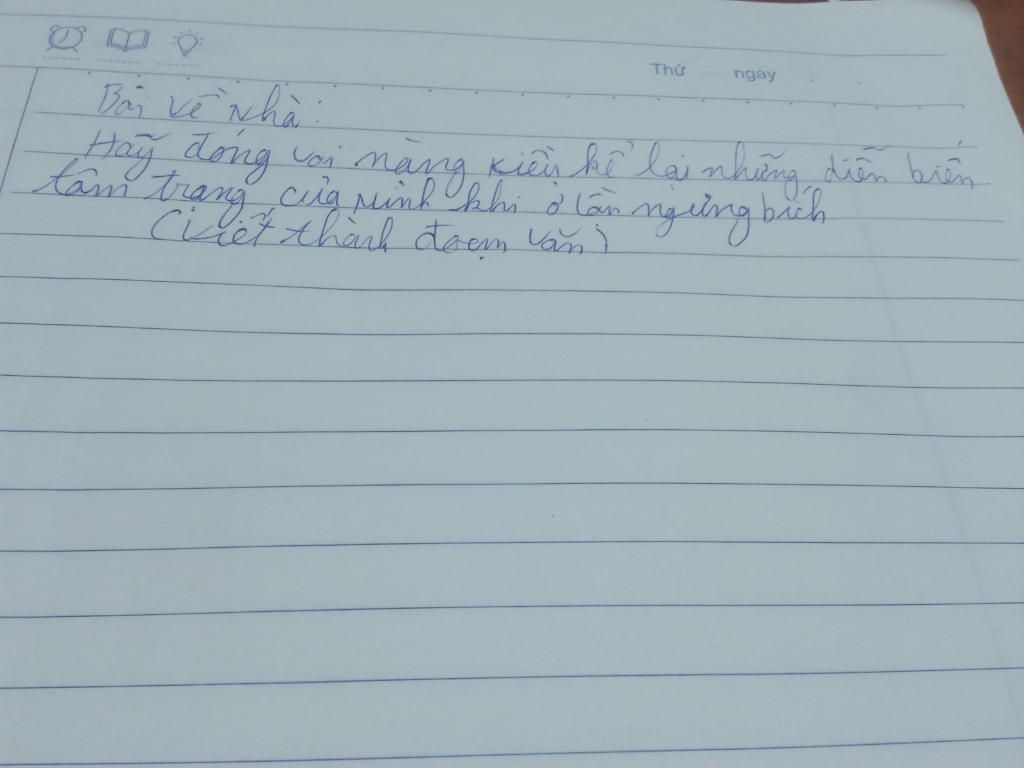 Thứ ngày
Bài về nhà:
Hãy đóng vai nàng Kiều kể lại những diễn biến
tâm trạng của mình khi ở lần ngưng bích
(Viết thành đoạn văn)